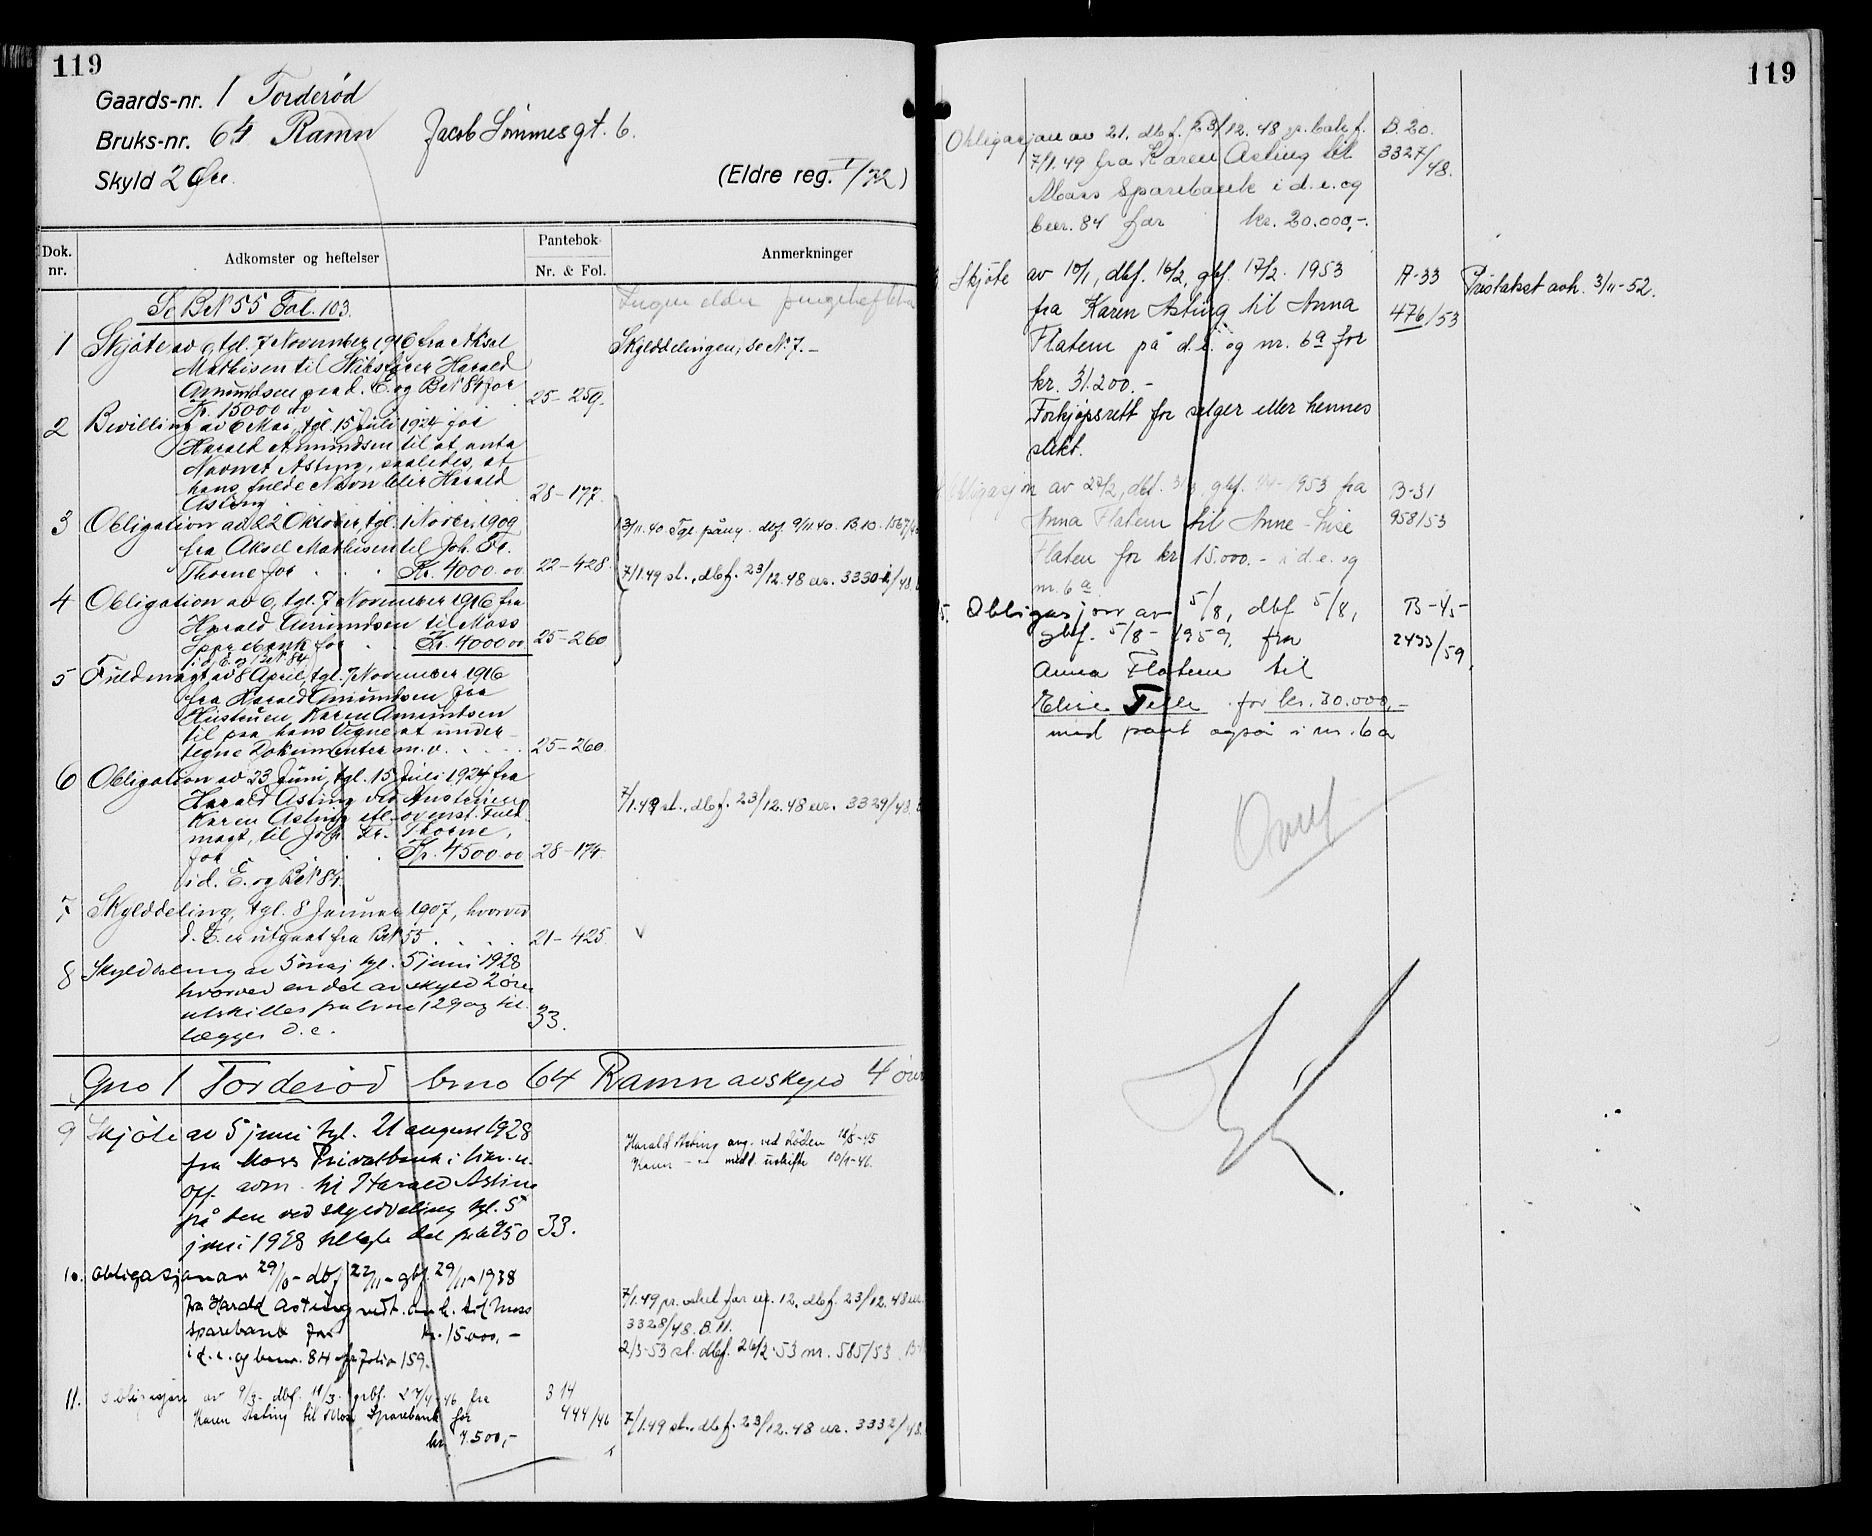 119
Gaards-nr. 1 Torderød
Bruks-nr. 64 Ramn Jacob Sømmesgt. 6.
Skyld 2 Øre.
(Eldre reg. I/72)
Dok. nr.
Adkomster og heftelser
Pantebok
Nr. & Fol.
Anmerkninger
Se BrN 55 Fol. 103.
Ingen eldre pengeheftelser
1 Skjøte av 6, tgl. 7 November 1916 fra Aksel
Mathisen til Skibsfører Harald
Amundsen paa d. E. og BrN 84 for
Kr. 15000.00
25-259.
Skylddelingen; se N. 7.-
2 Bevilling av 6 Mai, tgl. 15 Juli 1924 for
Harald Amundsen til at anta
Navnet Asting, saaledes, at
hans fulde Navn blir Harald
Asting
28-177.
3 Obligation av 22 Oktober, tgl. 1 Novbr. 1909
fra Aksel Mathisen til Joh. Fr.
Thorne for Kr. 4000.00
22-428
13/11.40 Tgl. påny. dbf. 9/11 40. B.10. 1567/40
7/1.49 sl., dbf. 23/12.48 nr. 3330/48.
4 Obligation av 6, tgl. 7 November 1916 fra
Harald Amundsen til Moss
Sparebank for Kr. 4000.00
i d. E. og BrN 84
25-260
5 Fuldmagt av 8 April, tgl. 7 November 1916
fra Harald Amundsen for
Hustruen, Karen Amundsen
til paa hans Vegne at under-
tegne Dokumenter m.v.
25-260
6 Obligation av 23 Juni, tgl. 15 Juli 1924 fra
Harald Asting ved Hustruen
Karen Asting efl. ovenst. Fuld
magt, til Joh. Fr. Thorne,
for Kr. 4500.00
i d. E. og BrN 84.
28-174.
7/1.49 sl., dbf. 23/12.48 nr. 3329/48.
7 Skylddeling, tgl. 8 Januar 1907, hvorved
d. E. er utgaat fra BrN 55
21-425
8 Skylddeling av 5 mai tgl. 5 juni 1928
hvorved en del av skyld 2 øre
utskilles fra brno 129 og til-
lægges d. e.
33.
Gno 1 Torderød brno 64 Ramn av skyld 4 øre
9 Skjøte av 5 juni tgl. 21 august 1928
fra Moss Privatbank i likv. u.
off. adm. til Harald Asting
på den ved skylddeling tgl. 5
juni 1928 tillagte del for kr 250
33.
Harald Asting ang. ved døden 18/8-45
Karen - " - medt. uskifte 10/1-46.
10. Obligasjon av 29/10- dbf. 22/11- gbf. 29/11-1938
fra Harald Asting til Moss
sparebank for kr. 15000,-
i d. e. og brnr. 84 folio 159.
7/1.49 pr. veket for nr. 12, dbf. 23/12.48 nr.
3328/48. B.11.
2/3-53 sl. dbf. 26/2-53 nr. 585/53.
11. Obligasjon av 9/3- dbf. 11/3- gbf. 27/4-46 fra
Karen Asting til Moss Sparebank for
kr. 7.500,-
3 14
444/46
7/1.49 sl., dbf. 23/12.48 nr. 3332/48.
119
Obligasjon av 21. dbf. 23/12.48 gr. bok f.
7/1.49 fra Karen Asting til
Moss Sparebank i d. e. og
bnr. 84 for kr. 20.000,-.
B.20.
3327/48.
Skjøte av 10/1, dbf. 16/2, gbf. 17/2. 1953
fra Karen Asting til Anna
Flatem på d. e. og nr. 6a for
kr. 31.200.-
Forkjøpsrett for selger eller hennes
slekt.
A-33
476/53
Pristakst avh. 3/11-52.
Obligasjon av 27/2, dbf. 3/3 gbf. 1953 fra
Anna Flatem til Anne-Lise
Flaten for kr 15.000.- i d. e. og
nr. 6a.
B-31
958/53
5. Obligasjon av 5/8, dbf 5/8,
gbf. 5/8- 1959, fra
Anna Flatem til
Elise for kr. 30.000,-
med pant også i nr. 6a
B-45-
2433/59